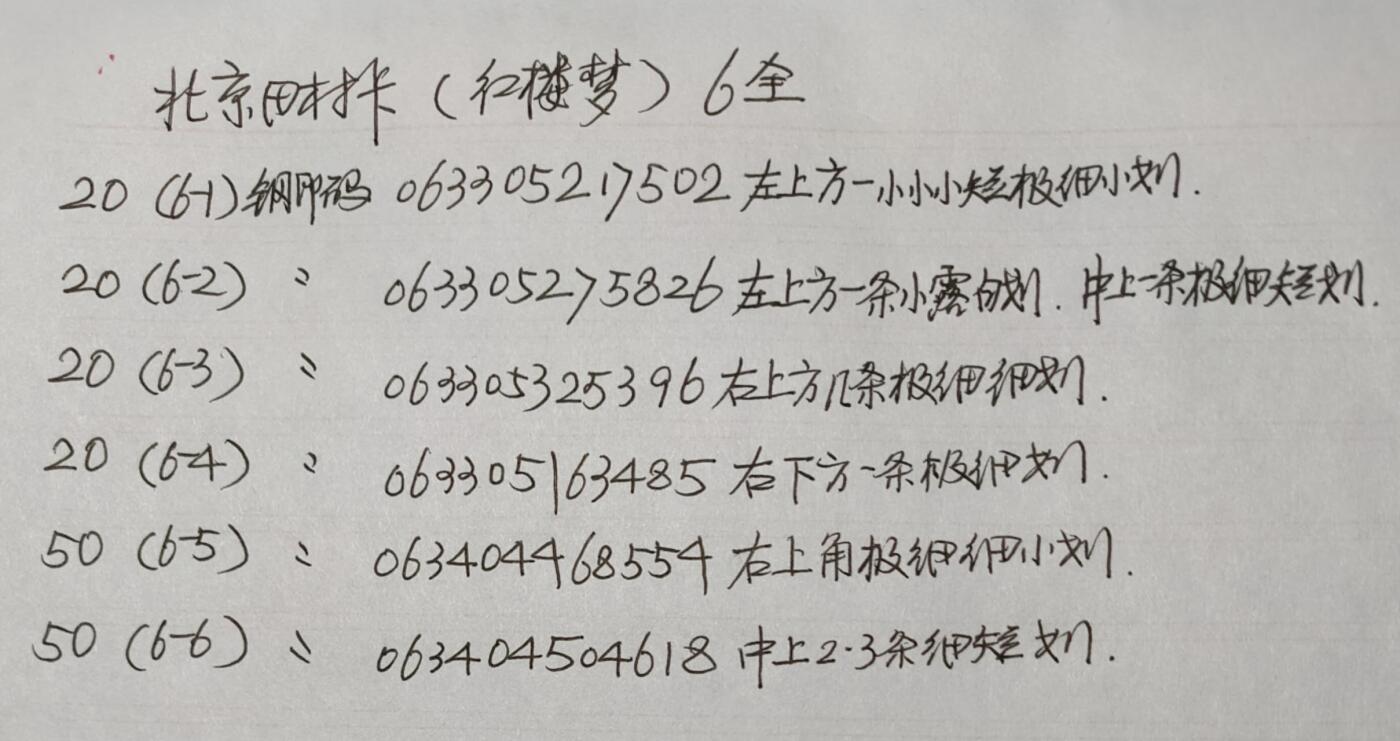 北京田村卡（红楼梦）6全
20（6-1）钢印码 063305217502 左上方一小小小短极细小划.
20（6-2） 〃 063305275826 左上方一条小露白划. 中上一条极细短划.
20（6-3） 〃 063305325396 右上方几条极细细划.
20（6-4） 〃 063305163485 右下方一条极细划.
50（6-5） 〃 063404468554 右上角极细细小划.
50（6-6） 〃 063404504618 中上2·3条细短划.